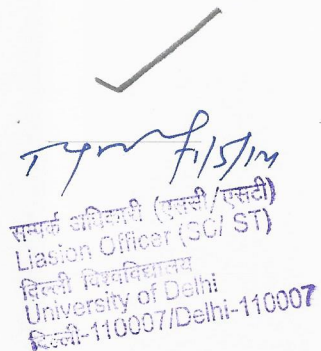 सम्पर्क अधिकारी (एससी/एसटी)
Liasion Officer (SC/ ST)
दिल्ली विश्वविद्यालय
University of Delhi
दिल्ली-110007/Delhi-110007